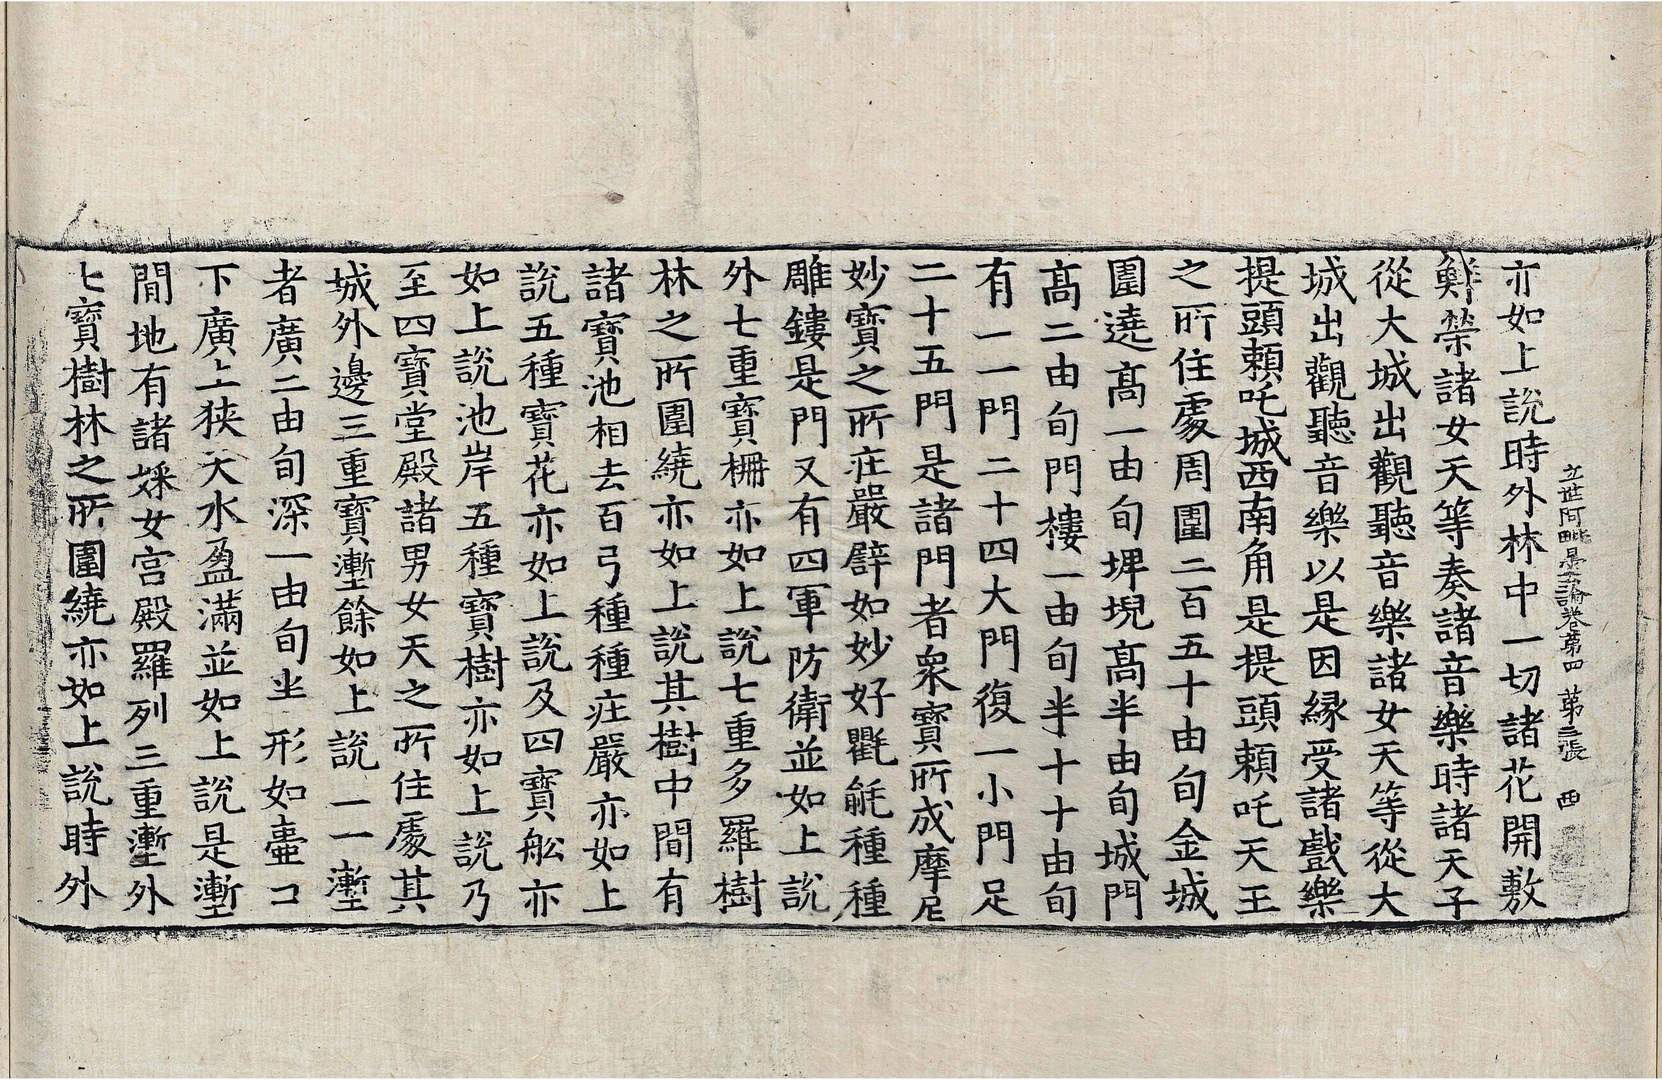 立世阿毗曇論卷第四 第三張 西
亦如上說時外林中一切諸花開敷
鮮榮諸女天等奏諸音樂時諸天子
從大城出觀聽音樂諸女天等從大
城出觀聽音樂以是因緣受諸戲樂
提頭賴吒城西南角是提頭賴吒天王
之所住處周圍二百五十由旬金城
圍遶高一由旬埤堄高半由旬城門
高二由旬門樓一由旬半十十由旬
有一一門二十四大門復一小門足
二十五門是諸門者衆寶所成摩尼
妙寶之所莊嚴譬如妙好氍毹種種
雕鏤是門又有四軍防衛並如上說
外七重寶柵亦如上說七重多羅樹
林之所圍繞亦如上說其樹中間有
諸寶池相去百弓種種莊嚴亦如上
說五種寶花亦如上說及四寶舩亦
如上說池岸五種寶樹亦如上說乃
至四寶堂殿諸男女天之所住處其
城外邊三重寶壍餘如上說一一壍
者廣二由旬深一由旬半形如壷口
下廣上狭天水盈滿並如上說是壍
間地有諸婇女宮殿羅列三重壍外
七寶樹林之所圍繞亦如上說時外